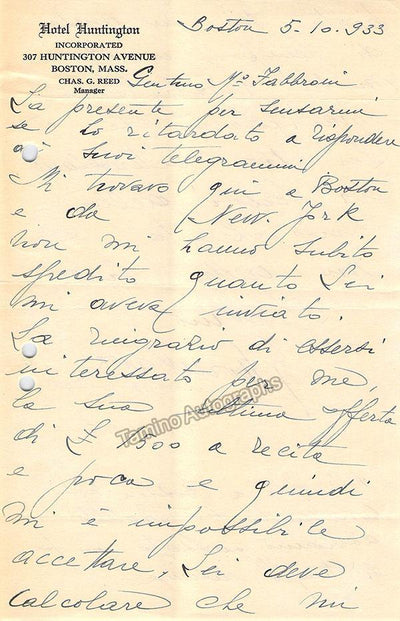 Hotel Huntington
INCORPORATED
307 HUNTINGTON AVENUE
BOSTON, MASS.
CHAS. G. REED
Manager
Boston 5-10-933
Gentmo Mo Fabbroni
La presente per scusarmi
se ho ritardato a rispondere
ai suoi telegrammi
Mi trovavo qui a Boston
e da New-York
non mi hanno subito
spedito quanto Lei
mi aveva inviato.
La ringrazio di essersi
interessato per me,
la sua ultima offerta
di £ 1500 a recita
e poca e quindi
mi è impossibile
accettare, Lei deve
calcolare che mi
Tamino Autographs